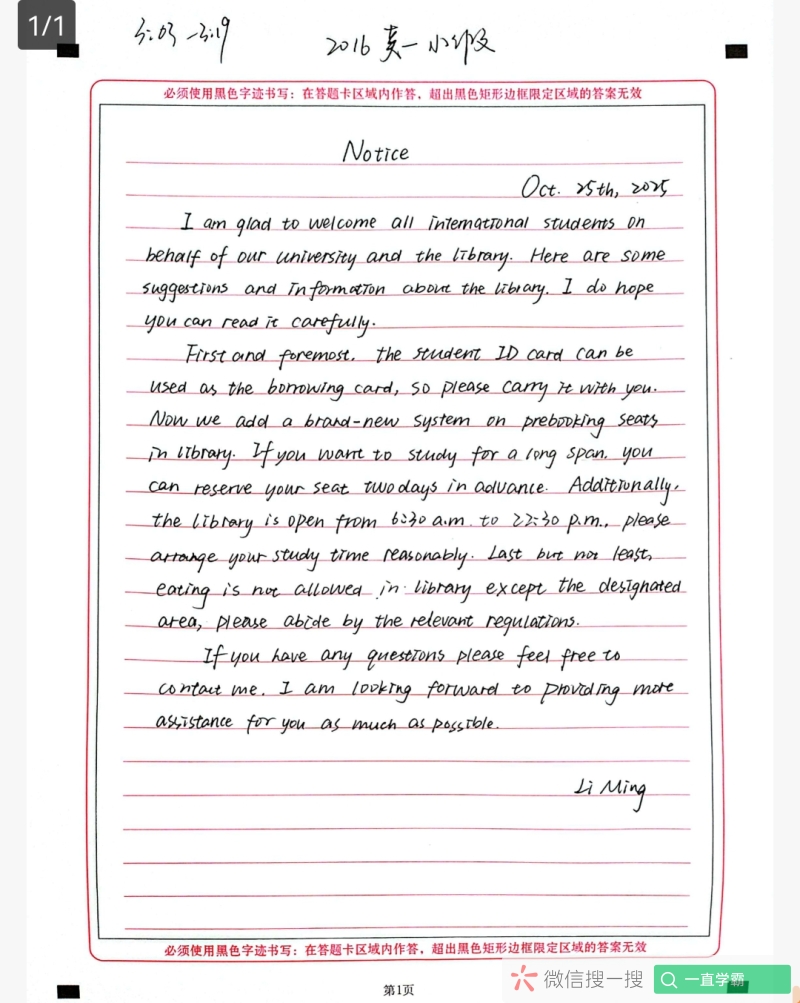 1/1
3:03 - 3:19
2016 英一小作文
必须使用黑色字迹书写：在答题卡区域内作答，超出黑色矩形边框限定区域的答案无效
Notice
Oct. 25th, 2025
I am glad to welcome all international students on
behalf of our university and the library. Here are some
suggestions and information about the library. I do hope
you can read it carefully.
First and foremost, the student ID card can be
used as the borrowing card, so please carry it with you.
Now we add a brand-new system on prebooking seats
in library. If you want to study for a long span, you
can reserve your seat two days in advance. Additionally,
the library is open from 6:30 a.m. to 22:30 p.m., please
arrange your study time reasonably. Last but not least,
eating is not allowed in library except the designated
area, please abide by the relevant regulations.
If you have any questions please feel free to
contact me. I am looking forward to providing more
assistance for you as much as possible.
Li Ming
必须使用黑色字迹书写：在答题卡区域内作答，超出黑色矩形边框限定区域的答案无效
微信搜一搜 一直学霸
第1页